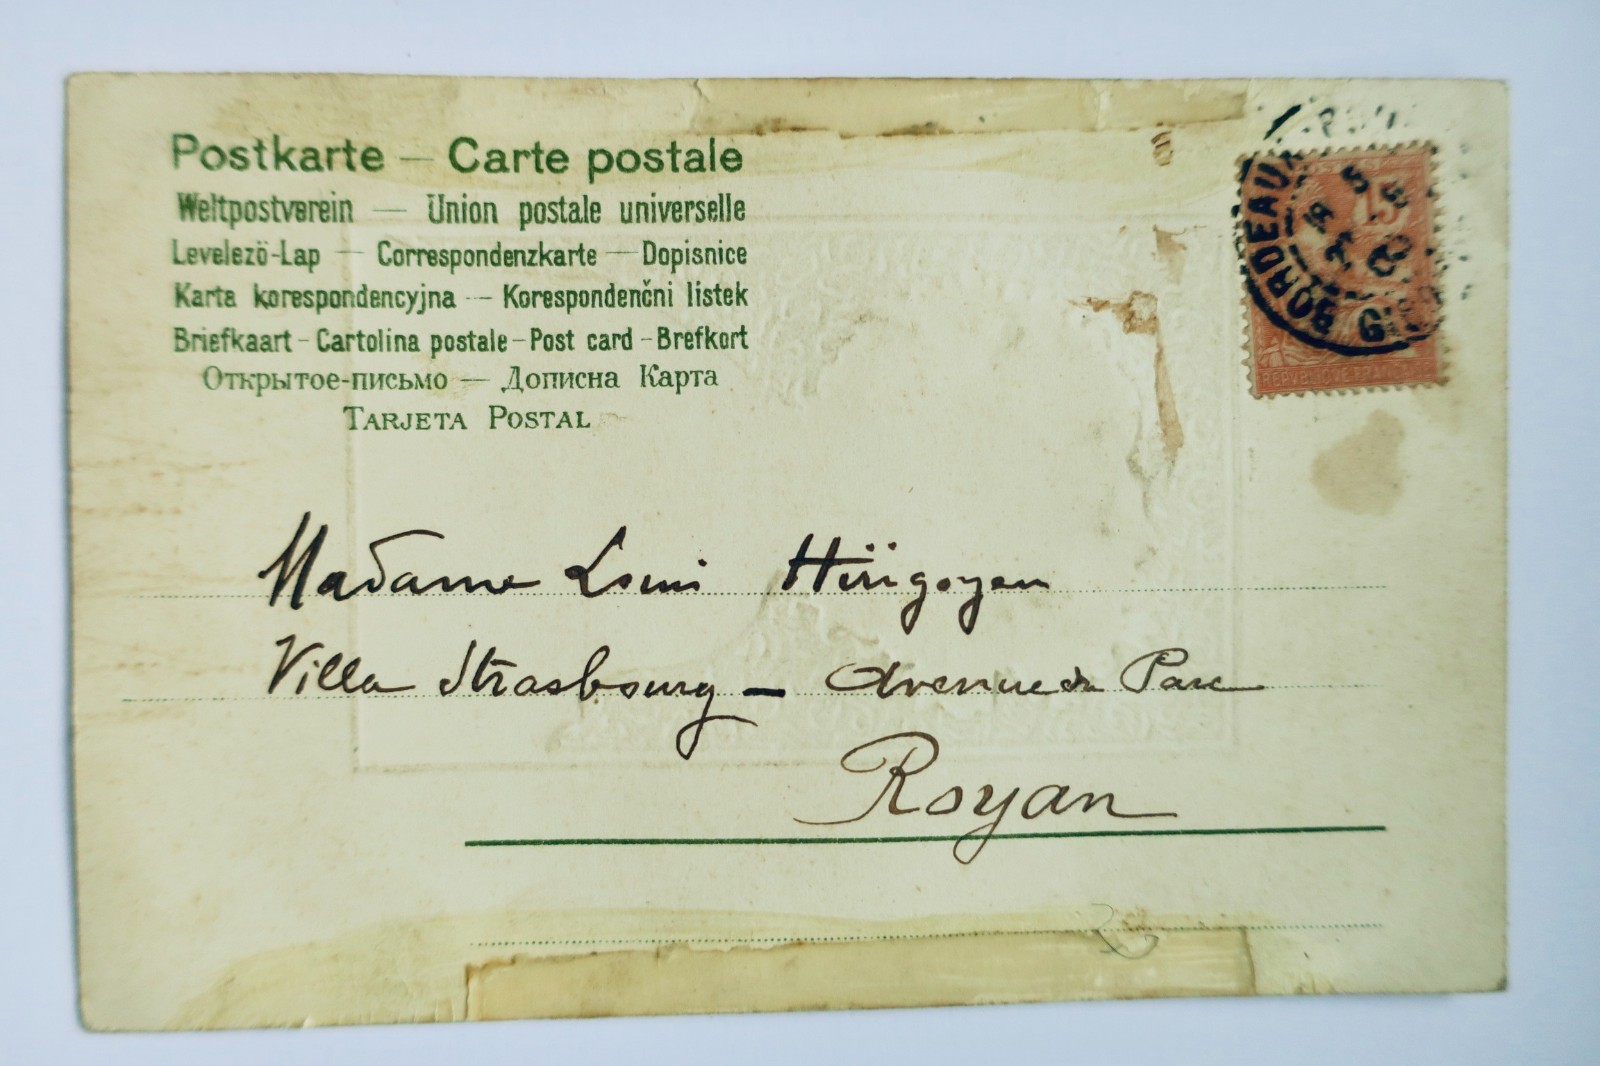 Postkarte — Carte postale
Weltpostverein — Union postale universelle
Levelező-Lap — Correspondenzkarte — Dopisnice
Karta korespondencyjna — Korespondenčni listek
Briefkaart - Cartolina postale - Post card - Brefkort
Открытое-письмо — Дописна Карта
TARJETA POSTAL
BORDEAUX
15
REPUBLIQUE FRANÇAISE
Madame Louis Hirigoyen
Villa Strasbourg — Avenue du Parc
Royan